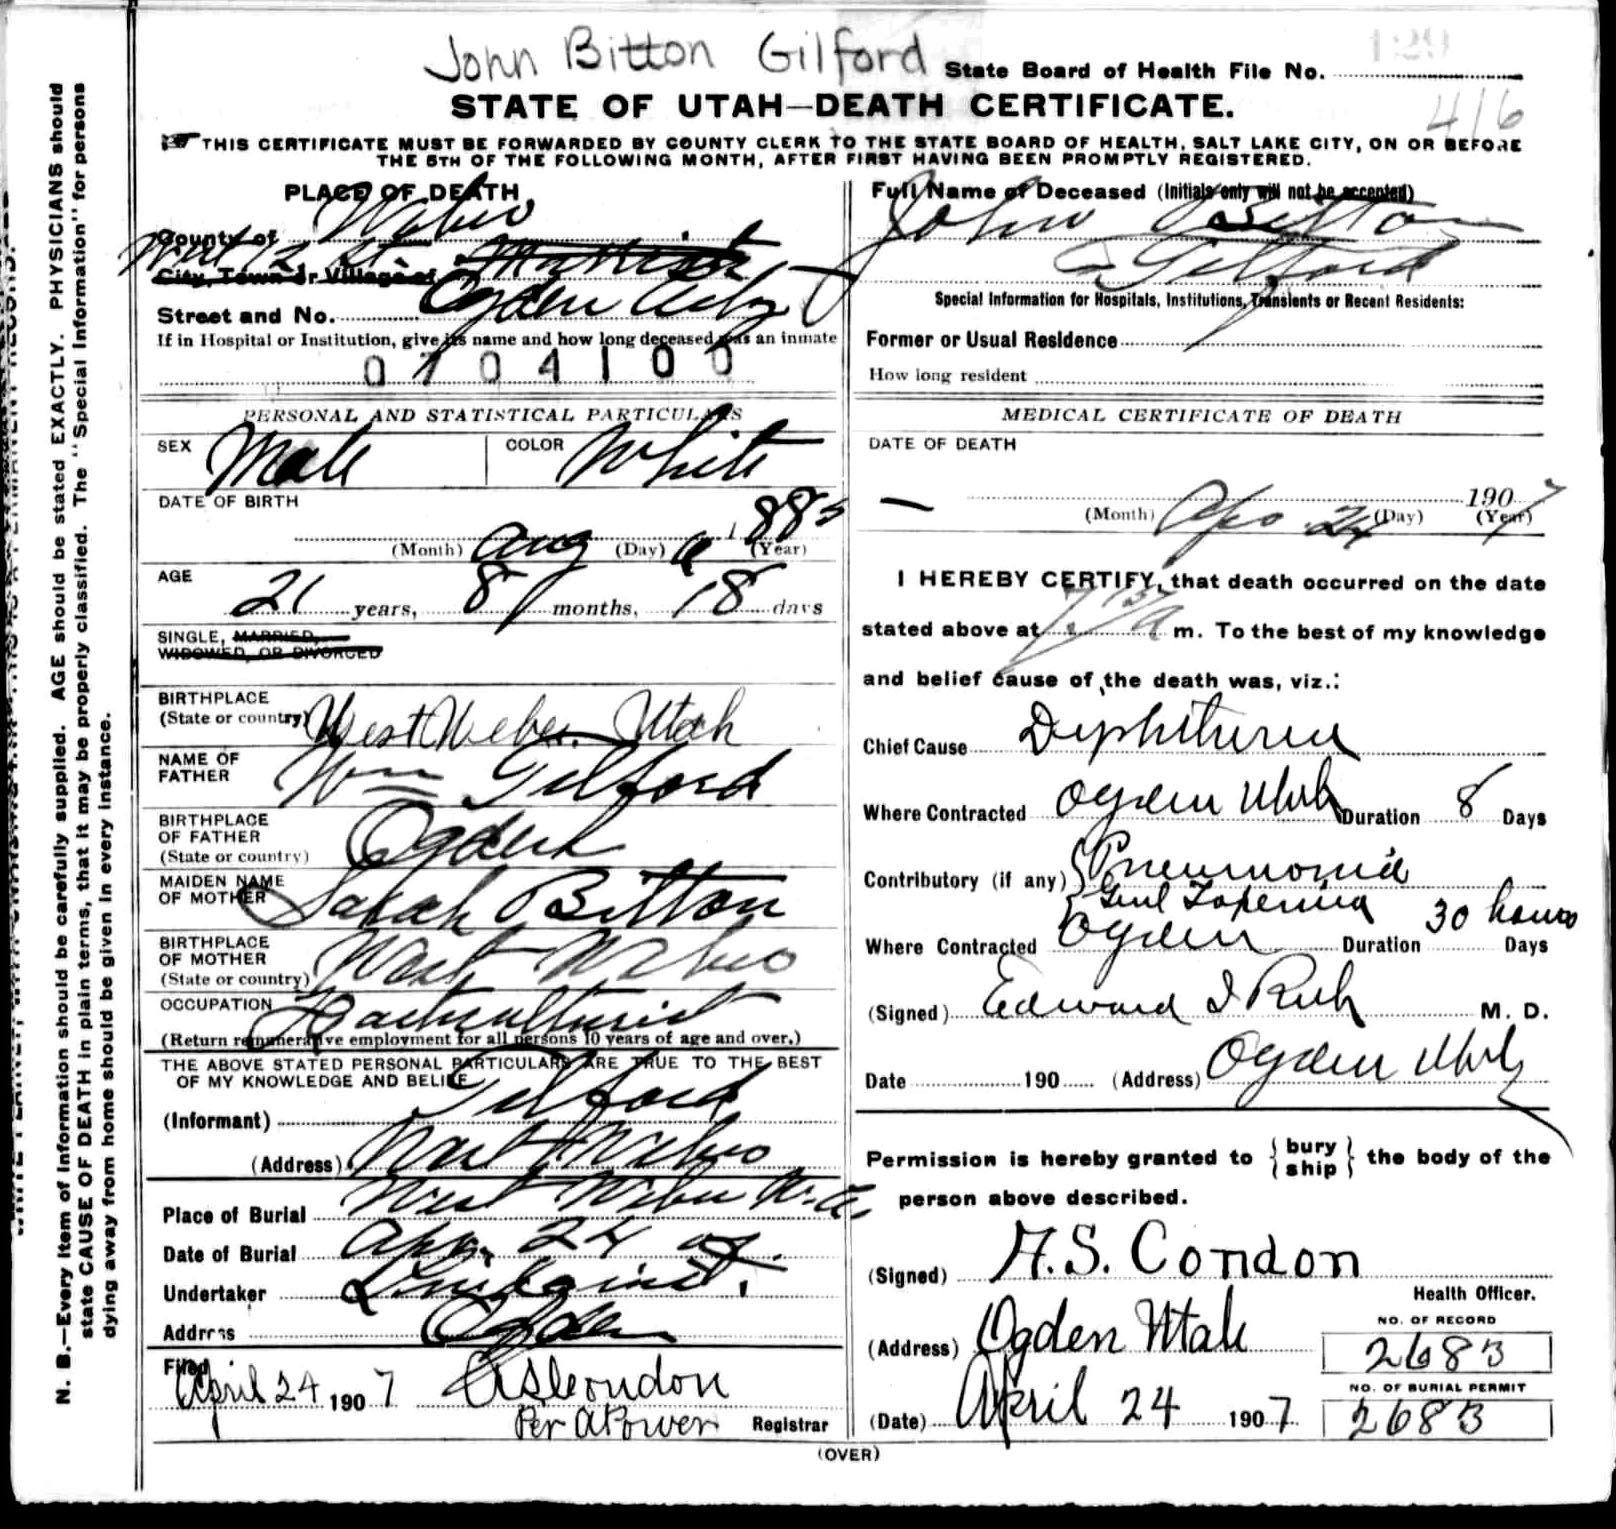 John Bitton Gilford
129
State Board of Health File No.
416
STATE OF UTAH—DEATH CERTIFICATE.
THIS CERTIFICATE MUST BE FORWARDED BY COUNTY CLERK TO THE STATE BOARD OF HEALTH, SALT LAKE CITY, ON OR BEFORE
THE 5TH OF THE FOLLOWING MONTH, AFTER FIRST HAVING BEEN PROMPTLY REGISTERED.
N. B.—Every item of information should be carefully supplied. AGE should be stated EXACTLY. PHYSICIANS should
state CAUSE OF DEATH in plain terms, that it may be properly classified. The "Special Information" for persons
dying away from home should be given in every instance.
PLACE OF DEATH
County of Weber
12 St.
City, Town or Village of
Street and No. Ogden City
If in Hospital or Institution, give its name and how long deceased was an inmate
0704100
PERSONAL AND STATISTICAL PARTICULARS
SEX Male COLOR White
DATE OF BIRTH
(Month) Aug (Day) 6 1885 (Year)
AGE
21 years, 8 months, 18 days
SINGLE, MARRIED,
WIDOWED, OR DIVORCED
BIRTHPLACE
(State or country) West Weber Utah
NAME OF
FATHER Wm Gilford
BIRTHPLACE
OF FATHER
(State or country) Ogden
MAIDEN NAME
OF MOTHER Sarah Bitton
BIRTHPLACE
OF MOTHER
(State or country) West Weber
OCCUPATION
(Return remunerative employment for all persons 10 years of age and over.)
THE ABOVE STATED PERSONAL PARTICULARS ARE TRUE TO THE BEST
OF MY KNOWLEDGE AND BELIEF
(Informant) Gilford
(Address) West Weber
Place of Burial West Weber
Date of Burial Apr. 24 07.
Undertaker Lindquist.
Address Ogden
Filed
April 24 1907 A S Condon
Per A Power Registrar
Full Name of Deceased (Initials only will not be accepted)
John Bitton
Gilford
Special Information for Hospitals, Institutions, Transients or Recent Residents:
Former or Usual Residence
How long resident
MEDICAL CERTIFICATE OF DEATH
DATE OF DEATH
1907
(Month) Apr 24 (Day) (Year) 7
I HEREBY CERTIFY, that death occurred on the date
stated above at 7.15 A m. To the best of my knowledge
and belief cause of the death was, viz.:
Chief Cause Diphtheria
Where Contracted Ogden Utah Duration 8 Days
Contributory (if any) Pneumonia
Genl
Where Contracted Ogden Duration 30 hours Days
(Signed) Edward I Rich M. D.
Date 190 (Address) Ogden Utah
Permission is hereby granted to { bury ship } the body of the
person above described.
(Signed) A.S. Condon
Health Officer.
(Address) Ogden Utah
NO. OF RECORD
2683
NO. OF BURIAL PERMIT
2683
(Date) April 24 1907
(OVER)